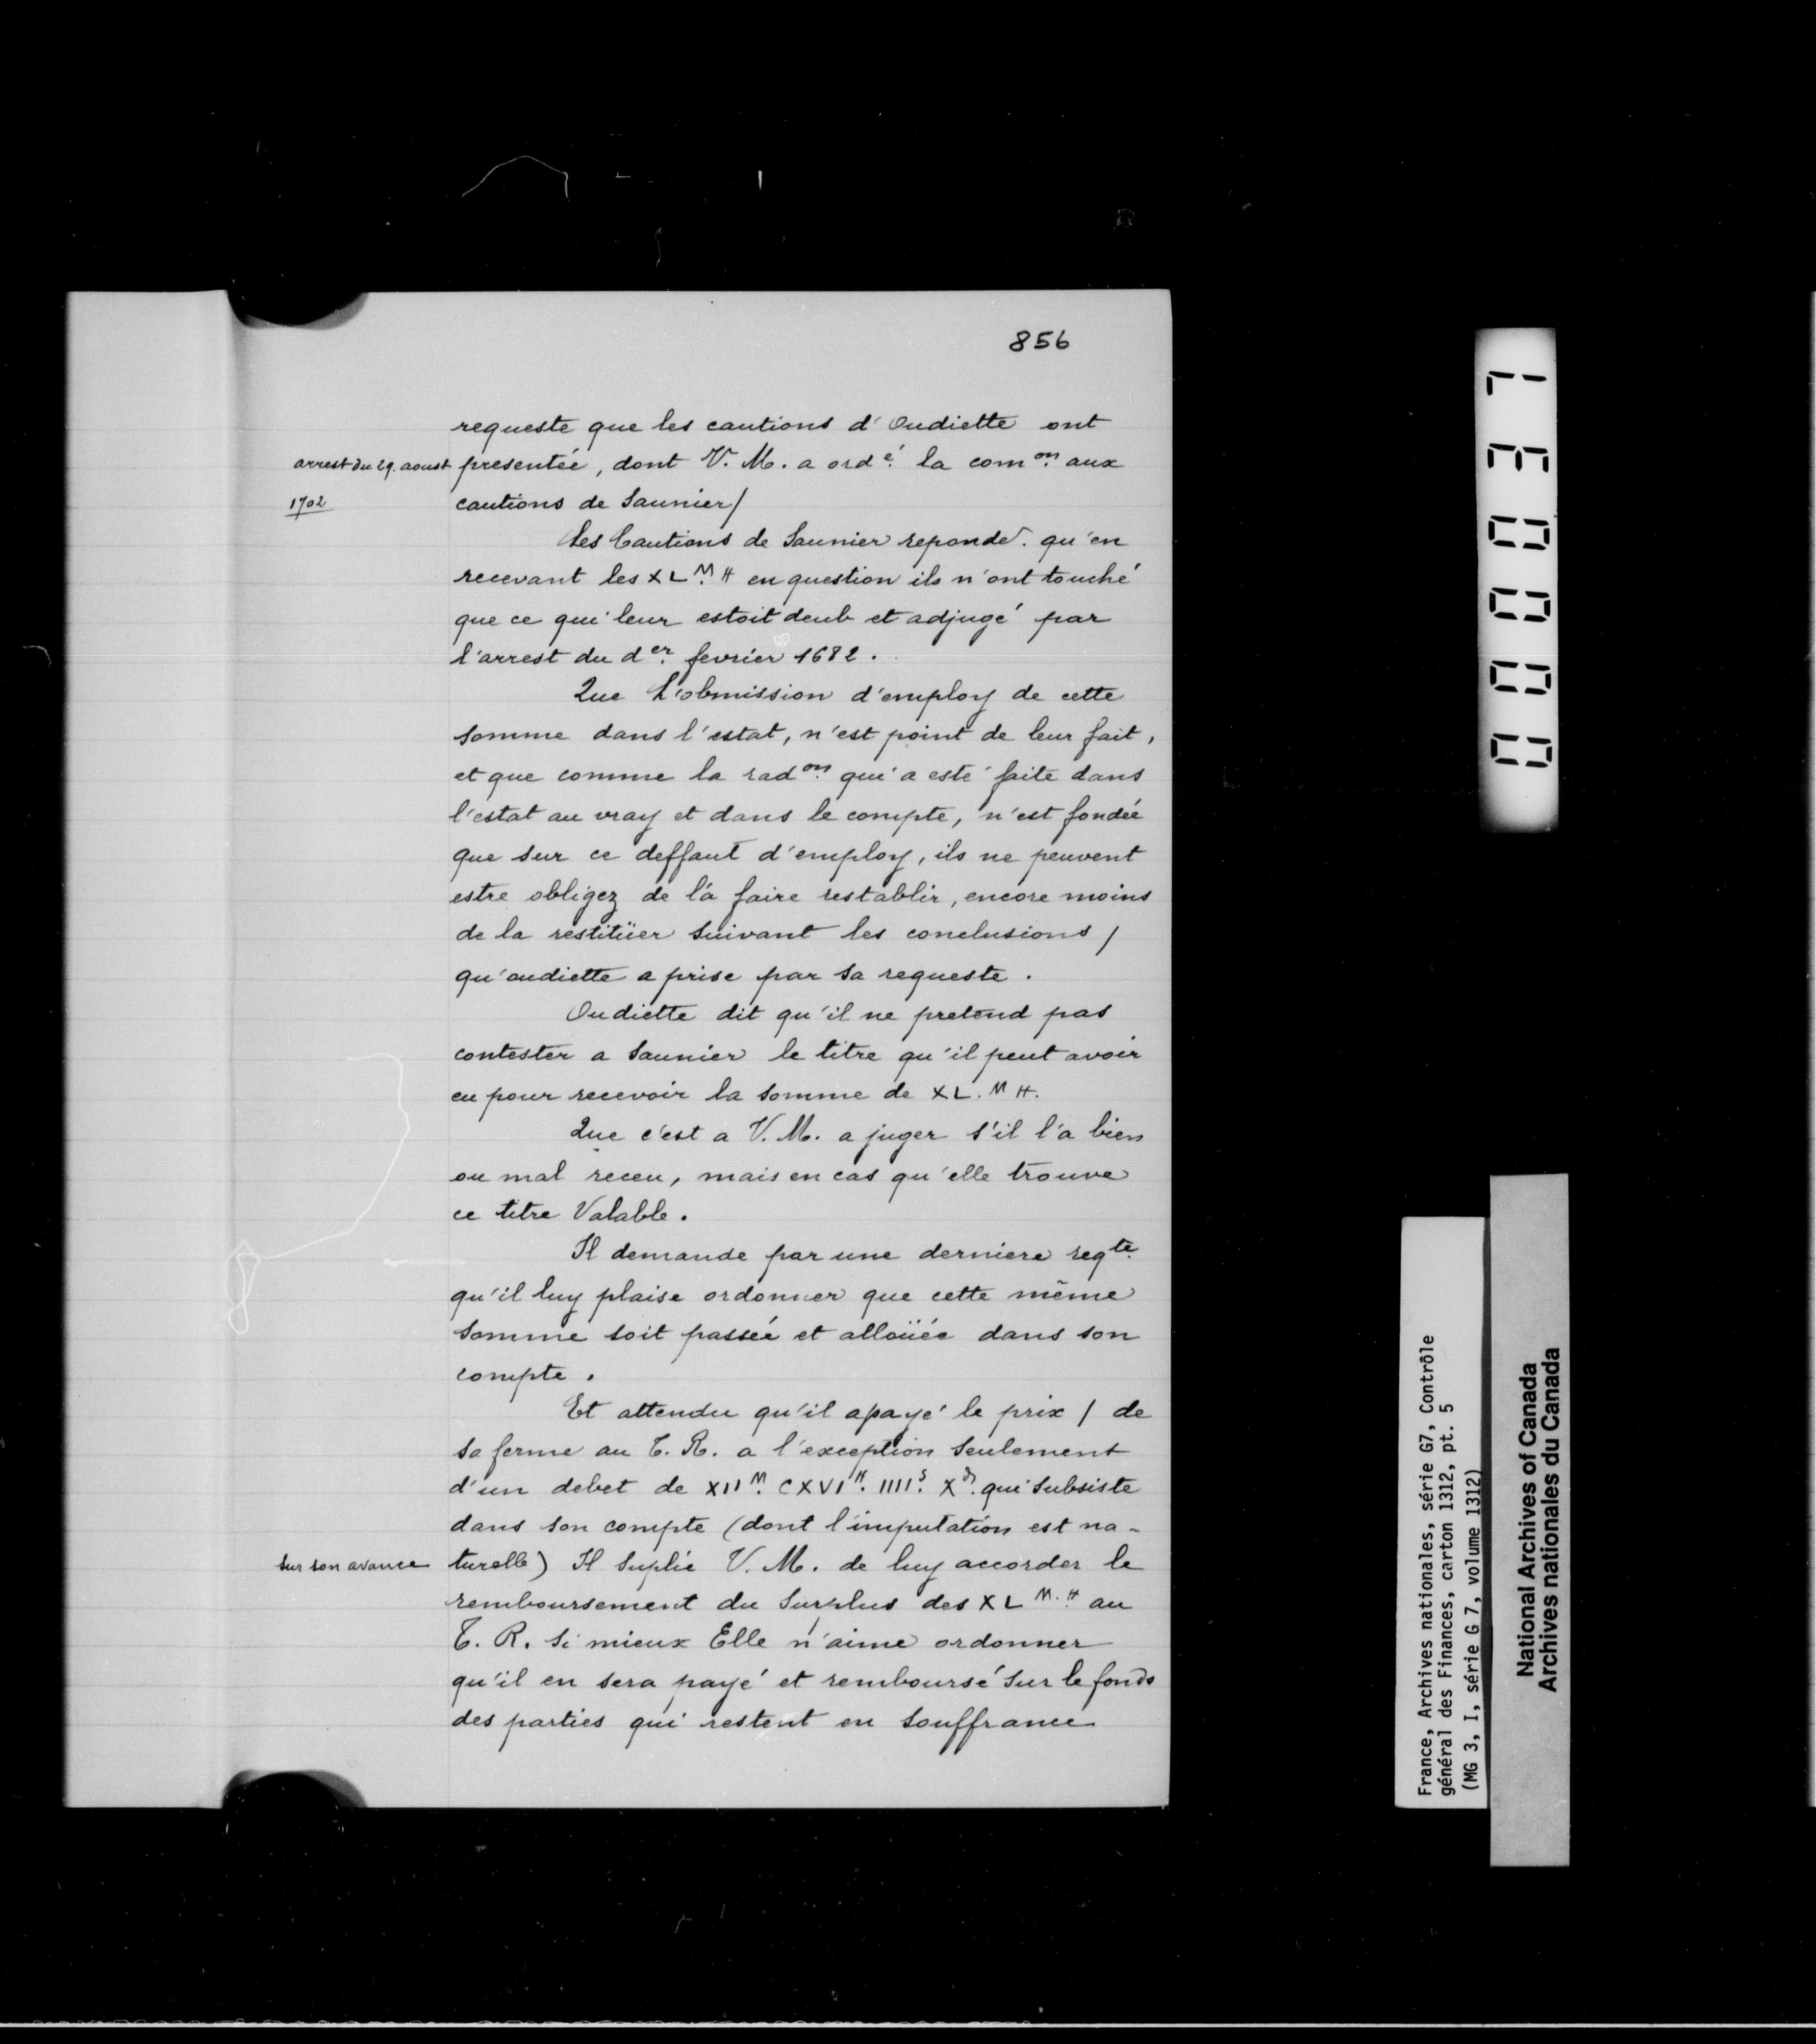 856
requeste que les cautions d'Oudiette ont
arrest du 29. aoust presentée, dont V. M. a ord.é la com.on aux
1702 cautions de Saunier/
Les Cautions de Saunier reponde. qu'en
recevant les XL.M ₶ en question ils n'ont touché
que ce qui leur estoit deub et adjugé par
l'arrest du d.er fevrier 1682.
Que L'obmission d'employ de cette
somme dans l'estat, n'est point de leur fait,
et que comme la rad.on qui a esté faite dans
l'estat au vray et dans le compte, n'est fondée
que sur ce deffaut d'employ, ils ne peuvent
estre obligez de la faire restablir, encore moins
de la restitüer suivant les conclusions/
qu'oudiette a prise par sa requeste.
Oudiette dit qu'il ne pretend pas
contester a Saunier le titre qu'il peut avoir
eu pour recevoir la somme de XL.M ₶.
Que c'est a V. M. a juger s'il l'a bien
ou mal receu, mais en cas qu'elle trouve
ce titre Valable.
Il demande par une derniere req.te
qu'il luy plaise ordonner que cette même
somme soit passée et alloüée dans son
compte.
Et attendu qu'il a payé le prix / de
sa ferme au T. R. a l'exception seulement
d'un debet de XII.M CXVI.₶ IIII.s X.d qui subsiste
dans son compte (dont l'imputation est na-
sur son avance turelle) Il suplie V. M. de luy accorder le
remboursement du surplus des XL M.₶ au
T. R. si mieux Elle n'aime ordonner
qu'il en sera payé et remboursé sur le fonds
des parties qui restent en souffrance
000037
France, Archives nationales, série G7, Contrôle
général des Finances, carton 1312, pt. 5
(MG 3, I, série G 7, volume 1312)
National Archives of Canada
Archives nationales du Canada